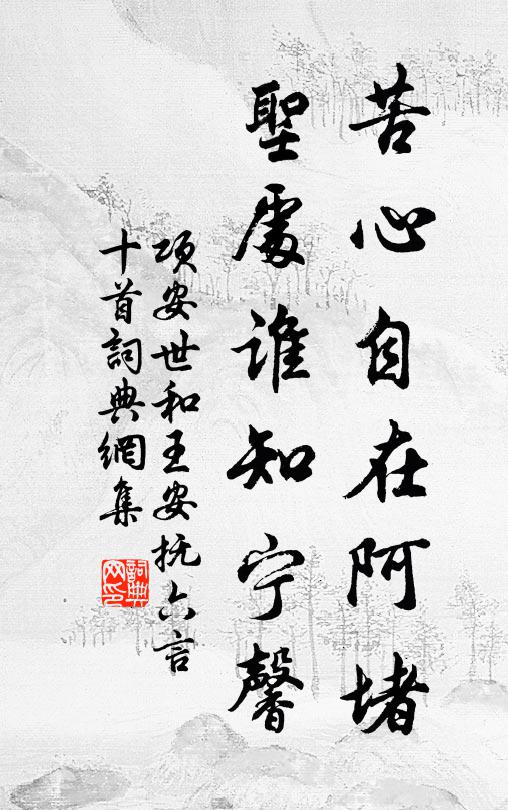 苦心自在阿堵
聖處誰知宁馨
项安世和王安抚六言
十首詞典網集
詞典网印